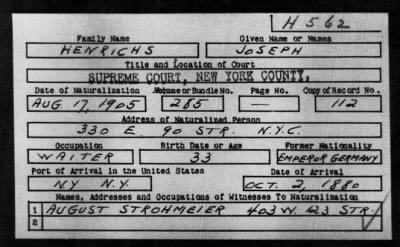 H 562
Family Name Given Name or Names
HENRICHS JOSEPH
Title and Location of Court
SUPREME COURT, NEW YORK COUNTY.
Date of Naturalization Volume or Bundle No. Page No. Copy of Record No.
AUG. 17, 1905 285 — 112
Address of Naturalized Person
330 E. 90 STR. N.Y.C.
Occupation Birth Date or Age Former Nationality
WAITER 33 EMPEROR GERMANY
Port of Arrival in the United States Date of Arrival
NY N.Y. OCT. 2, 1880
Names, Addresses and Occupations of Witnesses To Naturalization
1 AUGUST STROHMEIER 403 W. 123 STR.
2